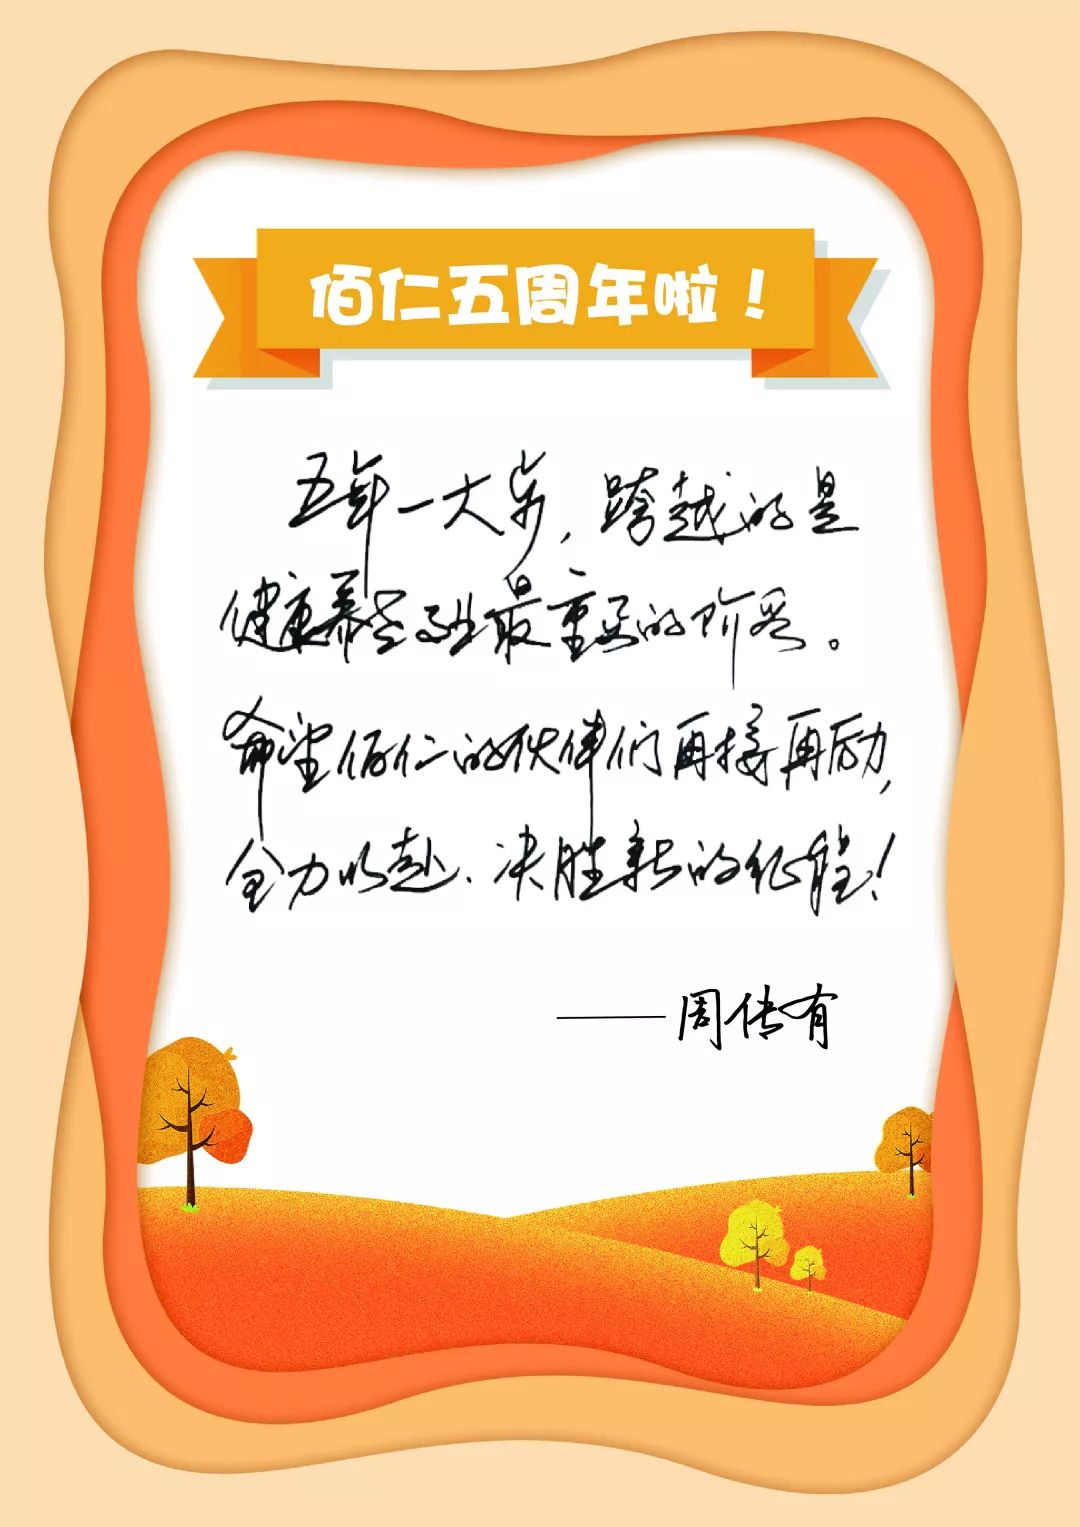 佰仁五周年啦！
五年一大步，跨越的是
健康养老事业最重要的阶段。
希望佰仁的伙伴们再接再励，
全力以赴、决胜新的征程！
——周传有